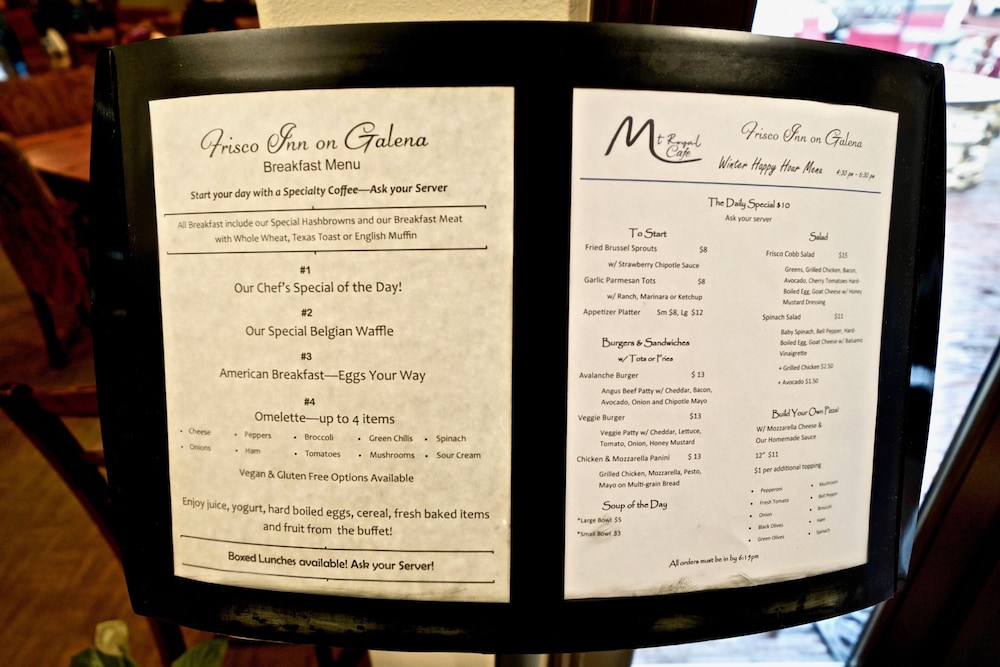 Frisco Inn on Galena
Breakfast Menu
Start your day with a Specialty Coffee—Ask your Server
All Breakfast include our Special Hashbrowns and our Breakfast Meat
with Whole Wheat, Texas Toast or English Muffin
#1
Our Chef's Special of the Day!
#2
Our Special Belgian Waffle
#3
American Breakfast—Eggs Your Way
#4
Omelette—up to 4 items
• Cheese • Peppers • Broccoli • Green Chilis • Spinach
• Onions • Ham • Tomatoes • Mushrooms • Sour Cream
Vegan & Gluten Free Options Available
Enjoy juice, yogurt, hard boiled eggs, cereal, fresh baked items
and fruit from the buffet!
Boxed Lunches available! Ask your Server!
Mt Royal
Cafe
Frisco Inn on Galena
Winter Happy Hour Menu 4:30 pm - 6:30 pm
The Daily Special $10
Ask your server
To Start
Fried Brussel Sprouts $8
w/ Strawberry Chipotle Sauce
Garlic Parmesan Tots $8
w/ Ranch, Marinara or Ketchup
Appetizer Platter Sm $8, Lg $12
Burgers & Sandwiches
w/ Tots or Fries
Avalanche Burger $ 13
Angus Beef Patty w/ Cheddar, Bacon,
Avocado, Onion and Chipotle Mayo
Veggie Burger $13
Veggie Patty w/ Cheddar, Lettuce,
Tomato, Onion, Honey Mustard
Chicken & Mozzarella Panini $ 13
Grilled Chicken, Mozzarella, Pesto,
Mayo on Multi-grain Bread
Soup of the Day
*Large Bowl $5
*Small Bowl $3
Salad
Frisco Cobb Salad $15
Greens, Grilled Chicken, Bacon,
Avocado, Cherry Tomatoes Hard-
Boiled Egg, Goat Cheese w/ Honey
Mustard Dressing
Spinach Salad $11
Baby Spinach, Bell Pepper, Hard-
Boiled Egg, Goat Cheese w/ Balsamic
Vinaigrette
+ Grilled Chicken $2.50
+ Avocado $1.50
Build Your Own Pizza!
W/ Mozzarella Cheese &
Our Homemade Sauce
12" $11
$1 per additional topping
• Pepperoni • Mushroom
• Fresh Tomato • Bell Pepper
• Onion • Broccoli
• Black Olives • Ham
• Green Olives • Spinach
All orders must be in by 6:15pm